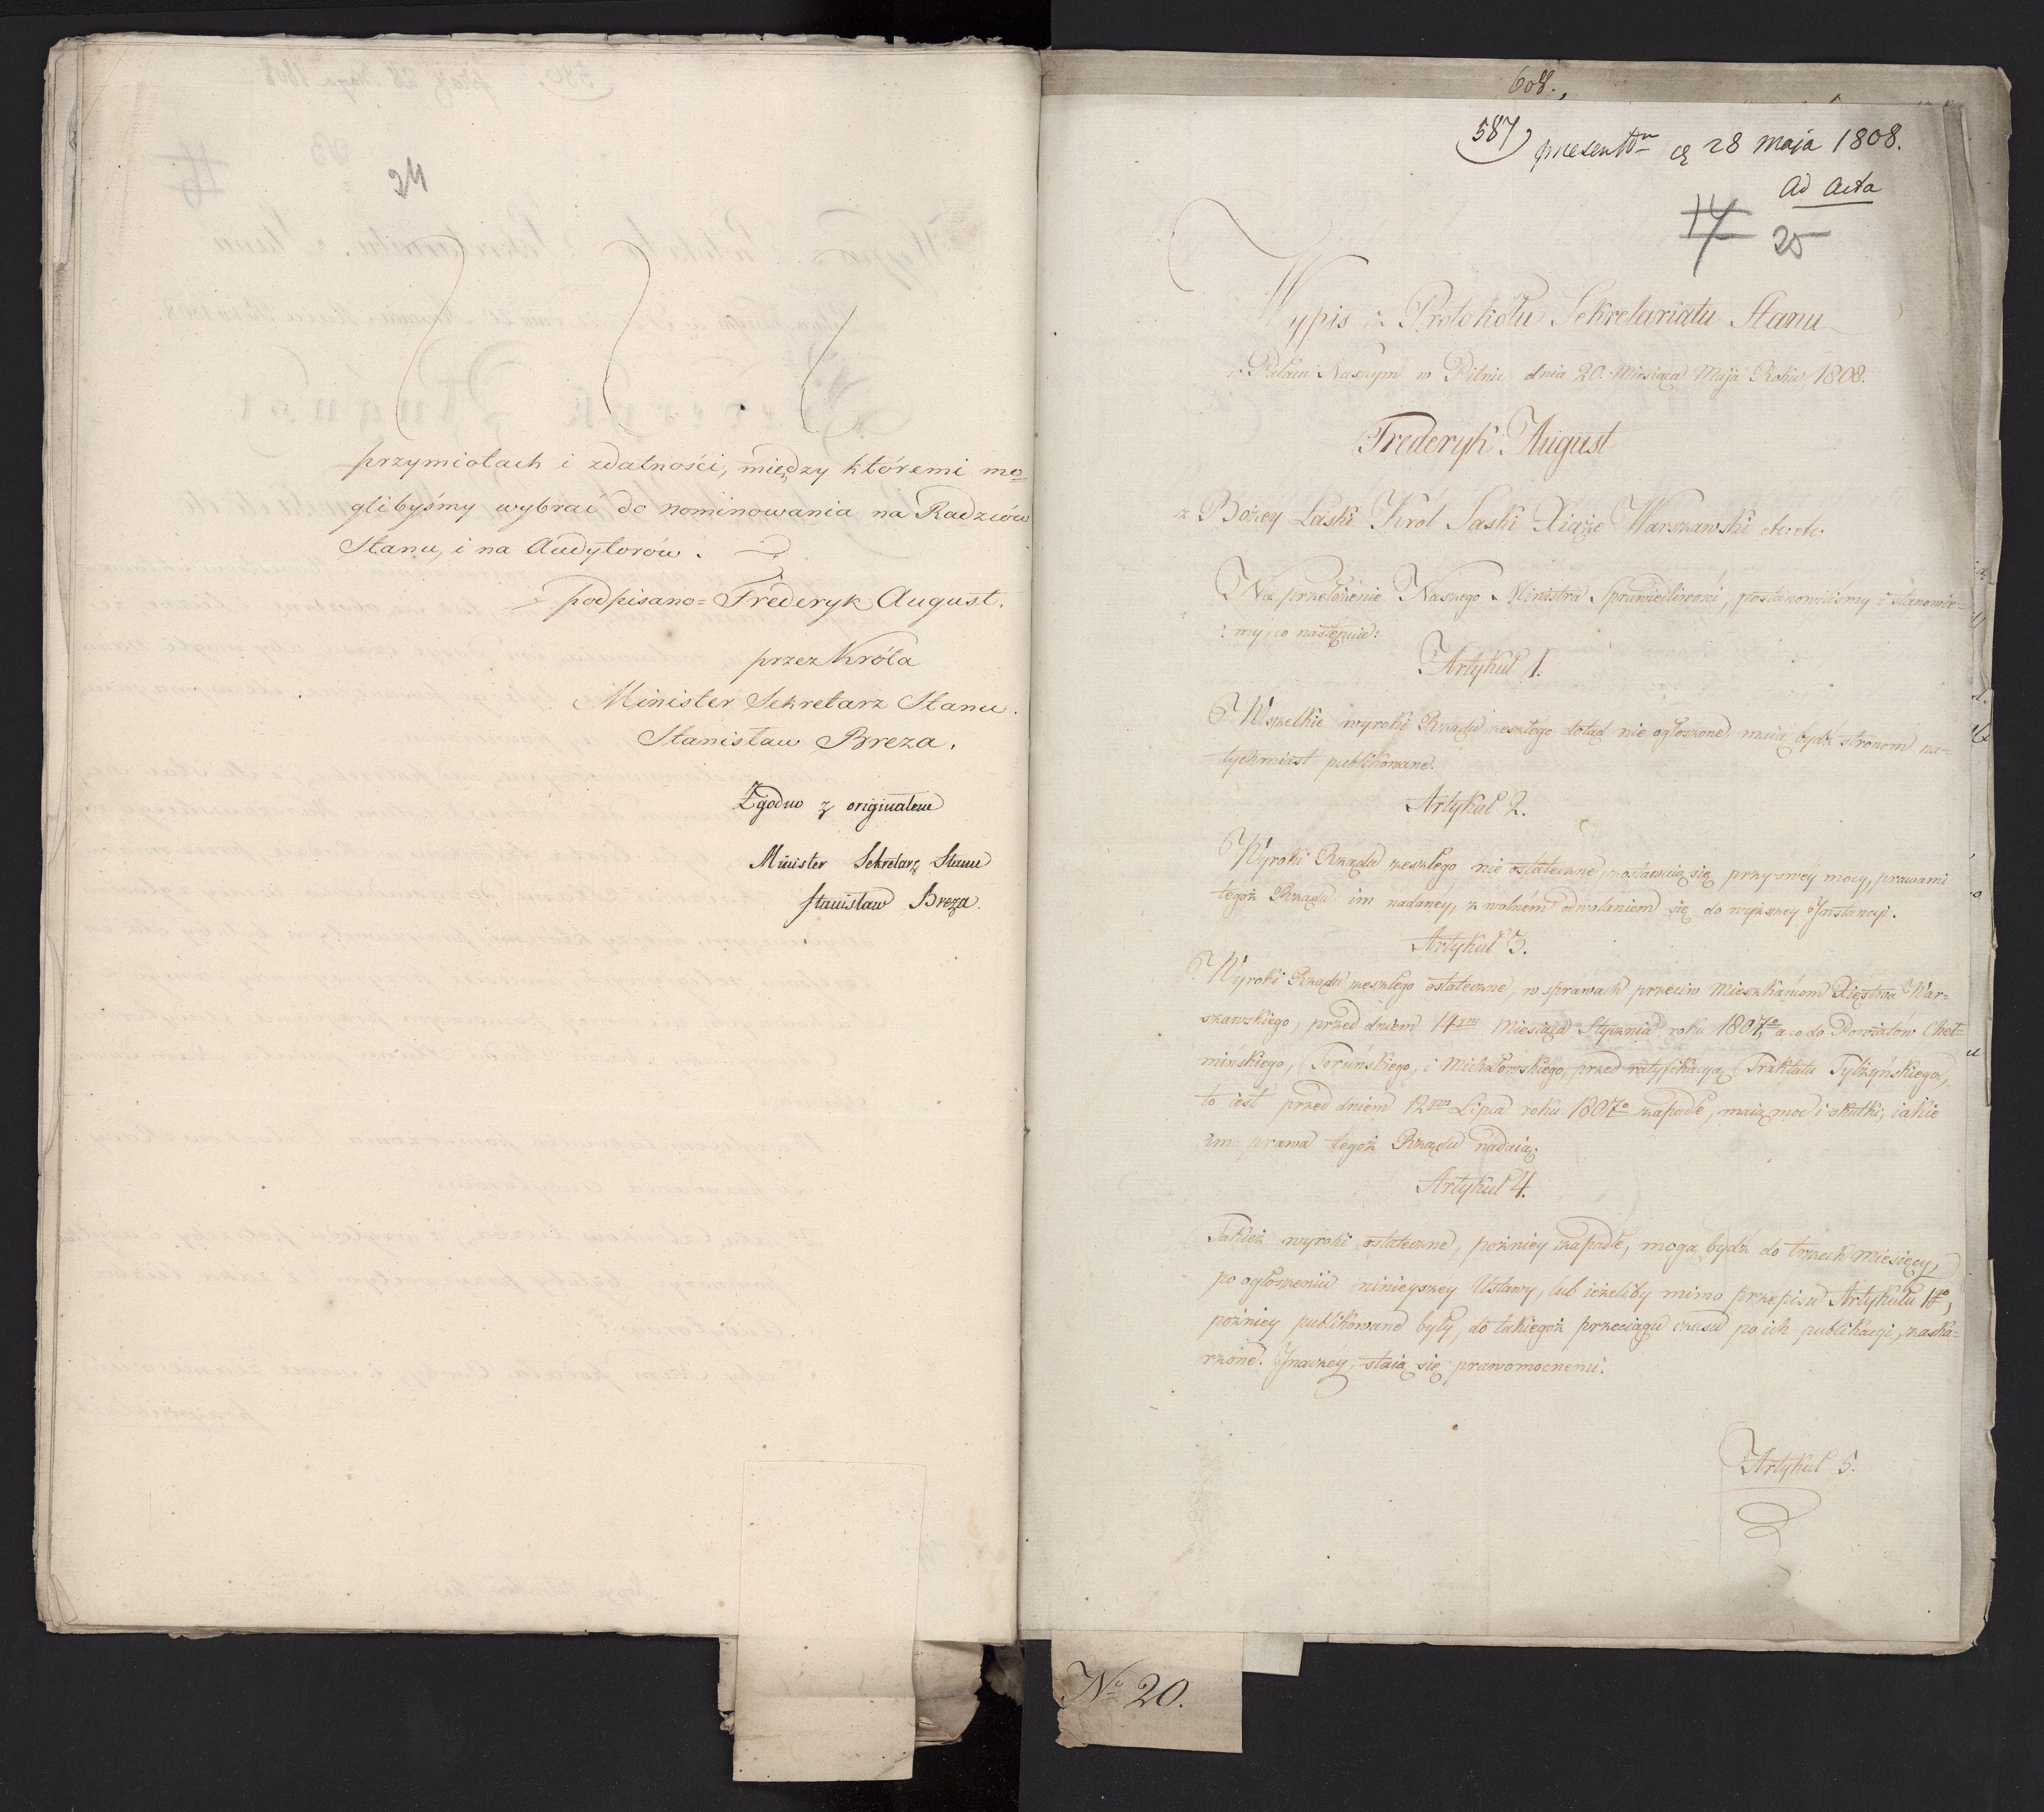 24
przymiotach i zdatności, między któremi mo=
glibyśmy wybrać do nominowania na Radzców
Stanu, i na Audytorów.
podpisano= Fréderyk August.
przez Króla
Minister Sekretarz Stanu.
Stanisław Breza.
Zgodno z originałem
Minister Sekretarz Stanu
Stanisław Breza.
608.,
587) presentm d 28 maja 1808.
Ad Acta
14 25
Wypis z Protokółu Sekretariatu Stanu
w Pałacu Naszym w Pilnic dnia 20. Miesiąca Maja Roku 1808.
Frederyk August
z Bożey Łaski Król Saski Xiąże Warszawski etc: etc:
Na przełożenie Naszego Ministra Sprawiedliwości, postanowiliśmy i stanowie=
:my, co następuie:
Artykuł 1.
Wszelkie wyroki Rządu zeszłego dotąd nie ogłoszone, maią bydź stronom na=
tychmiast publikowane.
Artykuł 2.
Wyroki Rządu zeszłego nie ostateczne, zostawuią się przy swey mocy, prawami
tegoż Rządu im nadaney, z wolném odwołaniem się do wyższey Instancyi.
Artykuł 3.
Wyroki Rządu zeszłego ostateczne, w sprawach przeciw Mieszkańcom Xięstwa War=
szawskiego, przed dniem 14ym Miesiąca Stycznia roku 1807o a co do Powiatów Cheł=
mińskiego, Toruńskiego, i Michałowskiego, przed ratyfikacyą Traktatu Tylżyńskiego,
to iest przed dniem 12ym Lipca roku 1807o zapadłe, maią moc i skutki, iakie
im prawa tegoż Rządu nadaią.
Artykuł 4.
Takież wyroki ostateczne, poźniey zapadłe, mogą bydź do trzech miesięcy,
po ogłoszeniu ninieyszey Ustawy, lub ieżeliby mimo przepisu Artykułu 1go,
poźniey publikowane były, do takiegoż przeciągu czasu po ich publikacyi, zaska=
rzone. Inaczéy, staią się prawomocnemi.
Artykuł 5.
No 20.